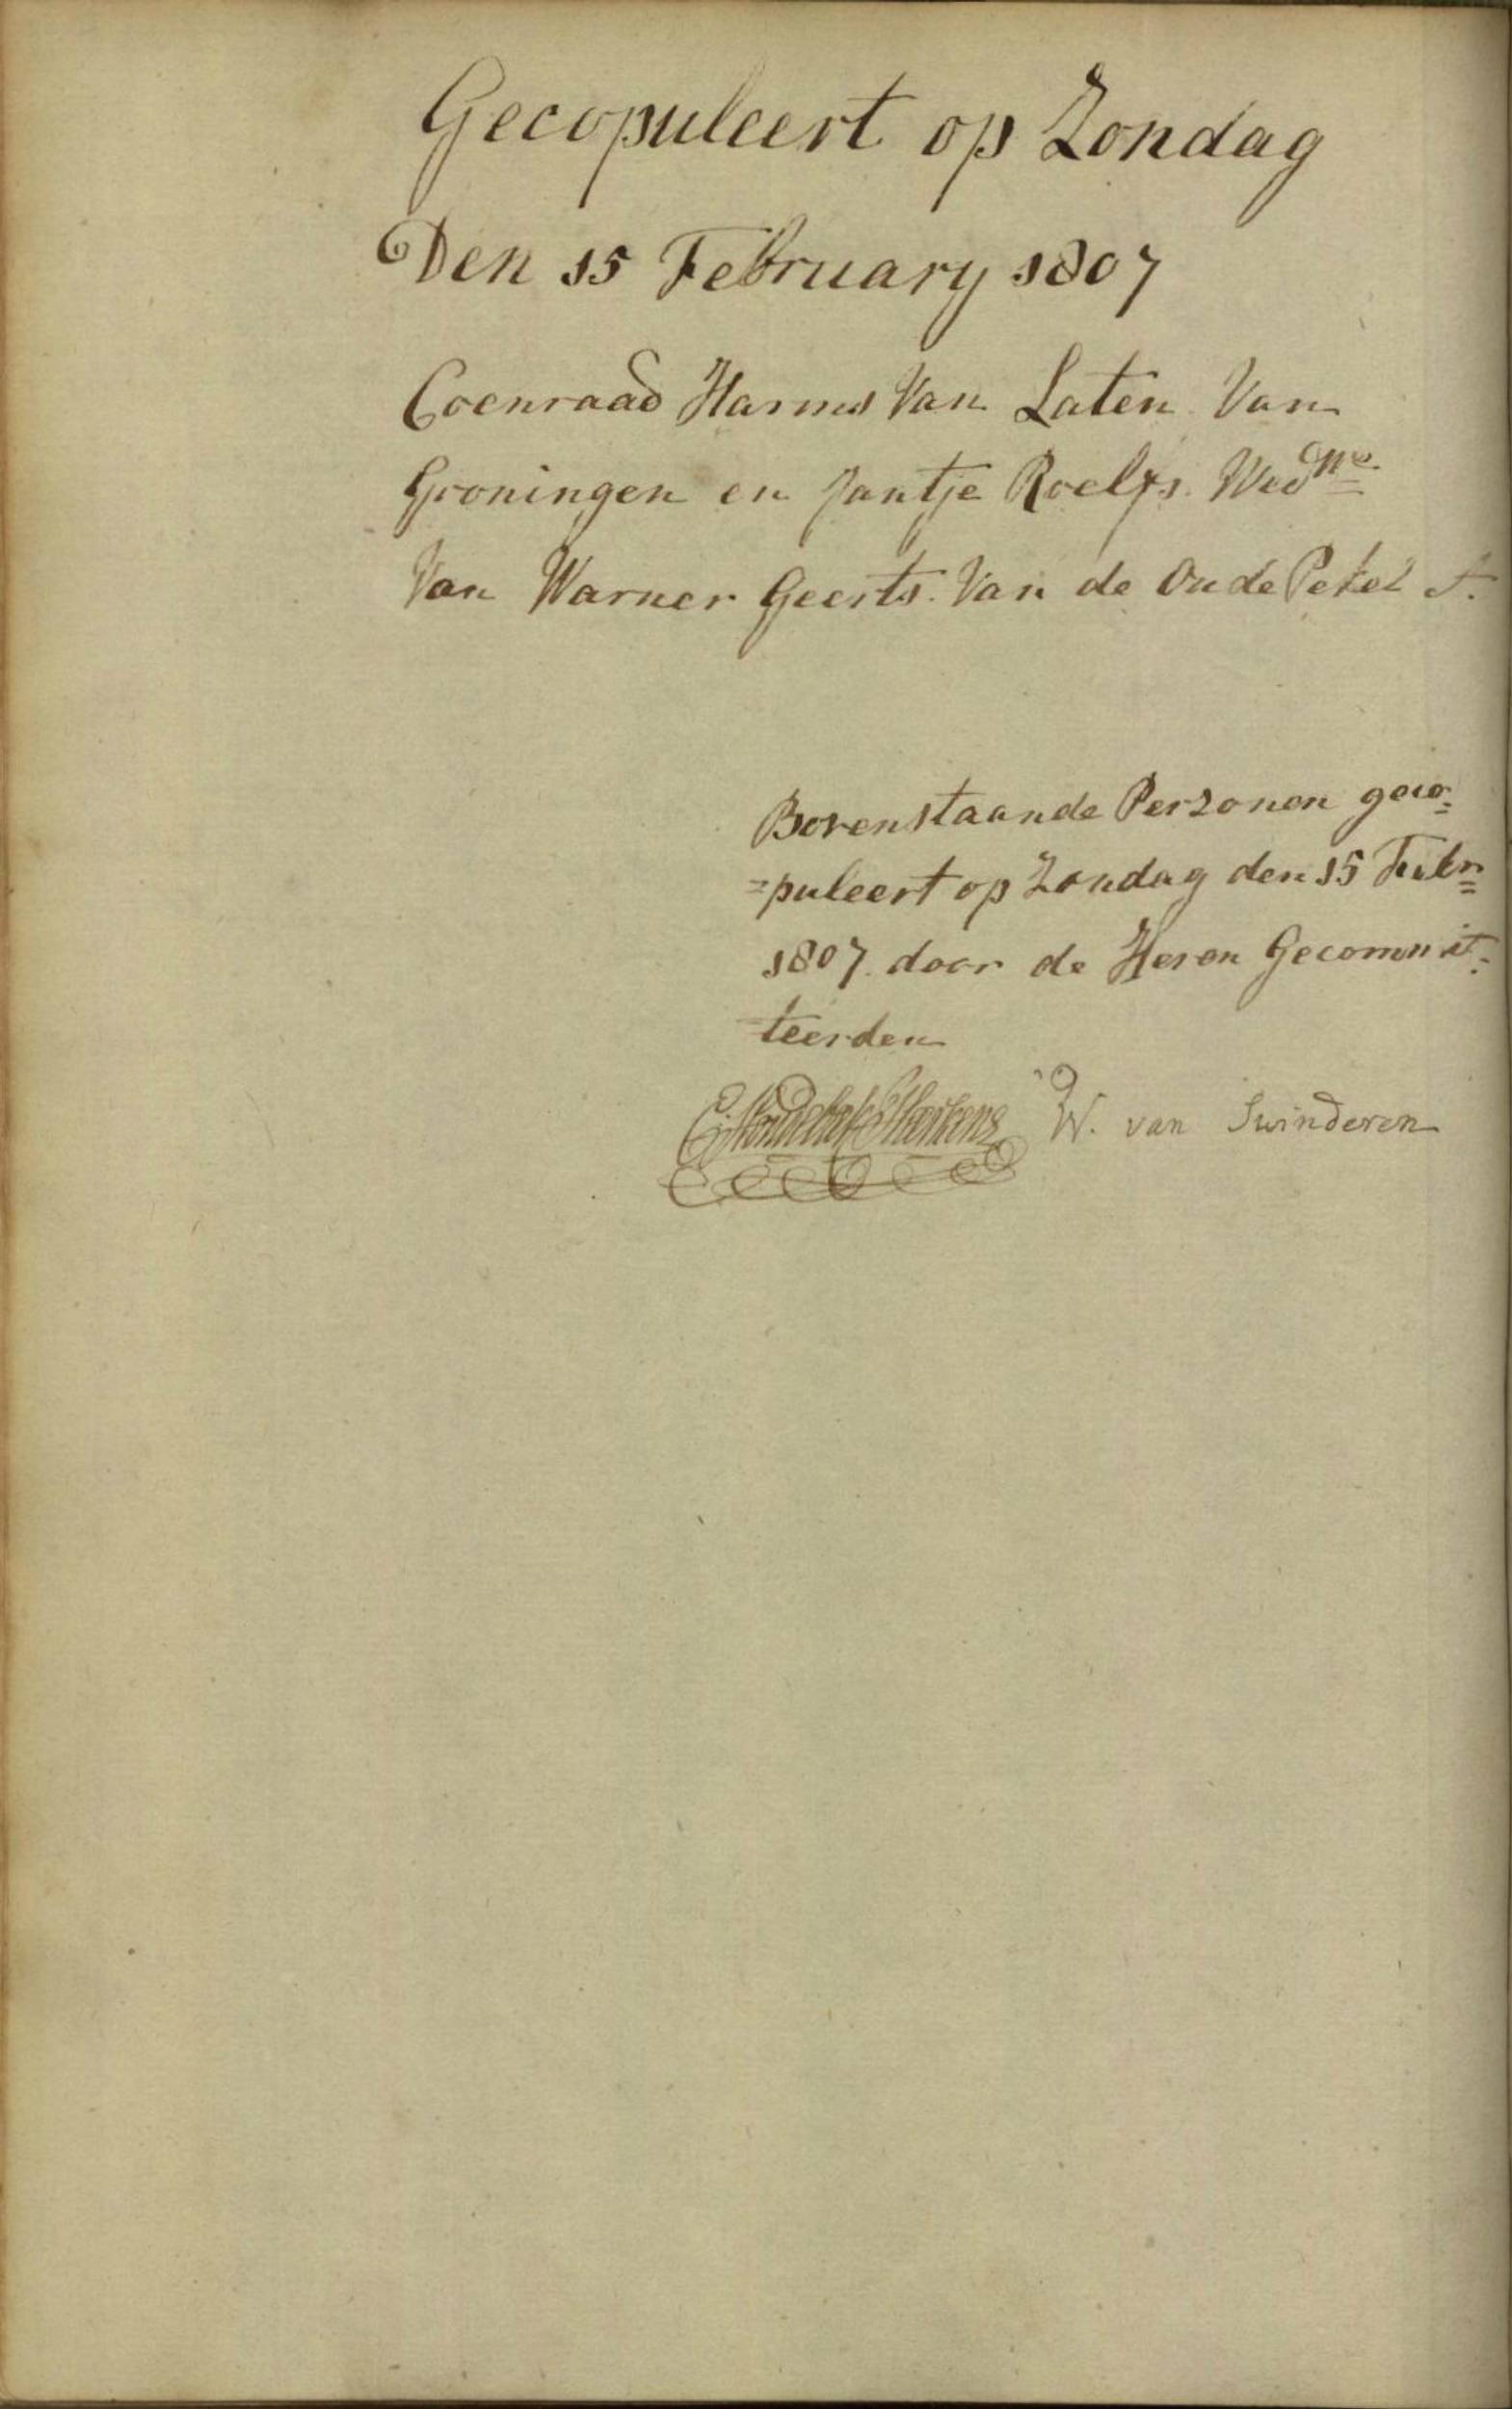 Gecopuleert op Zondag
Den 15 February 1807
Coenraad Harms Van Laten Van
Groningen en Jantje Roelfs Wed
Van Warner Geerts. Van de Oude Pekel A.
Bovenstaande Perzonen geco=
=puleert op Zondag den 15 Febr
1807. door de Heren Gecommit=
teerden
W. van Swinderen